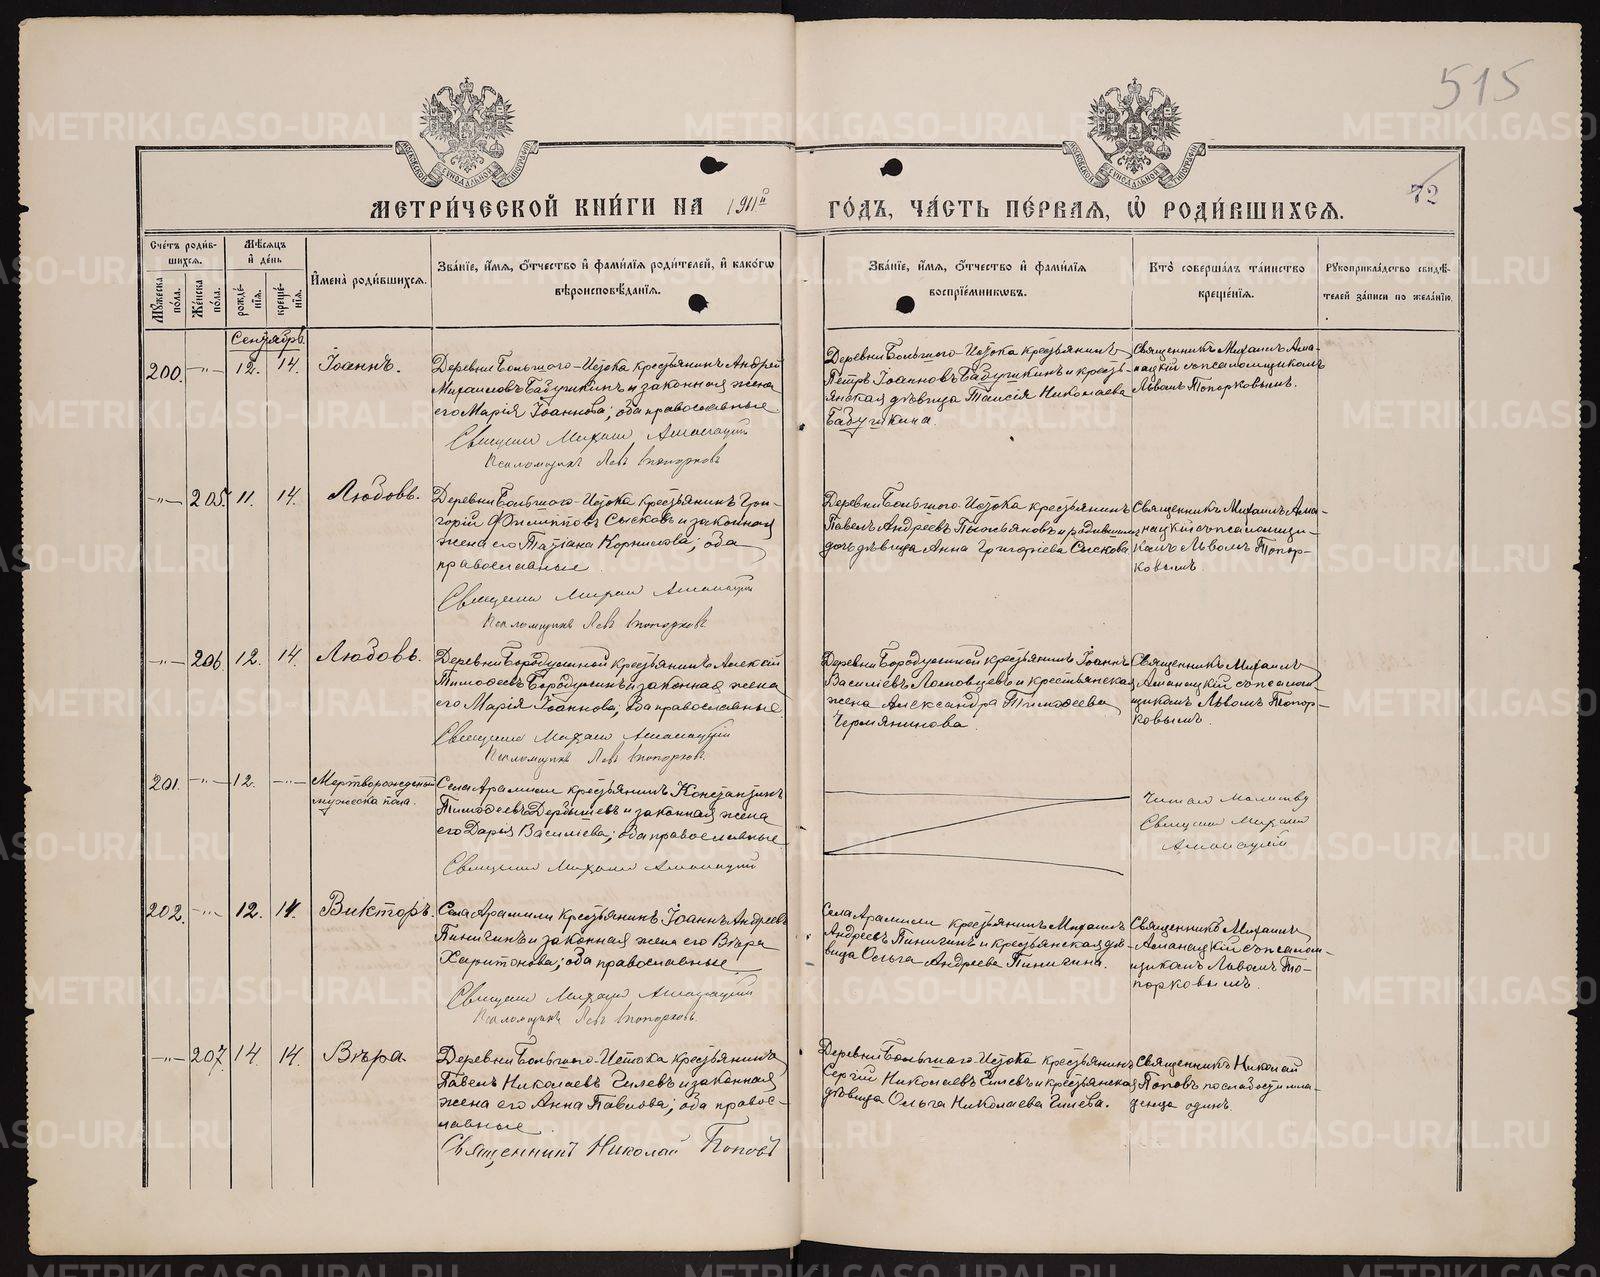 515
72
МЕТРИ́ЧЕСКОЙ КНИ́ГИ НА 1911й ГО́ДЪ, ЧА́СТЬ ПЕ́РВАЯ, Ѡ҆ РОДИ́ВШИХСЯ.
Сче́тъ роди́вшихся.
Мꙋ́жеска по́ла.
Же́нска по́ла.
Мѣ́сяцъ и҆ де́нь
рожде́нїя.
креще́нїя.
И҆мена̀ роди́вшихся.
Зва́нїе, и҆́мя, ѻ҆́тчество и҆ фами́лїя роди́телей, и҆ како́гѡ
вѣроисповѣ́данїя.
Зва́нїе, и҆́мя, ѻ҆́тчество и҆ фами́лїя
воспрїе́мникѡвъ.
Кто̀ соверша́лъ та́инство
креще́нїя.
Рꙋкоприкла́дство свидѣ́-
телей за́писи по жела́нїю.
Сентябрь
200. -"- 12. 14. Іоаннъ.
Деревни Большого-Истока крестьянинъ Андрей
Михаиловъ Бабушкинъ и законная жена
его Марія Іоаннова; оба православные
Священник Михаил Аманацкий
Псаломщикъ Левъ Топорковъ
Деревни Большого-Истока крестьянинъ
Петръ Іоанновъ Бабушкинъ и кресть-
янская дѣвица Таисія Николаева
Бабушкина.
Священникъ Михаилъ Ама-
нацкій съ псаломщикомъ
Львомъ Топорковымъ.
-"- 205. 11. 14. Любовь.
Деревни Большого-Истока крестьянинъ Гри-
горій Филипповъ Сысковъ и законная
жена его Татіана Корнилова; оба
православные
Священник Михаил Аманацкий
Псаломщикъ Левъ Топорковъ
Деревни Большого-Истока крестьянинъ
Павелъ Андреевъ
дочь дѣвица Анна Григорьева Сыскова
Священникъ Михаилъ Ама-
нацкій съ псаломщи-
комъ Львомъ Топор-
ковымъ
-"- 206 12. 14. Любовь.
Деревни Бородулиной крестьянинъ Алексѣй
Тимоѳеевъ Бородулинъ и законная жена
его Марія Іоаннова; оба православные
Священник Михаил Аманацкий
Псаломщикъ Левъ Топорковъ.
Деревни Бородулиной крестьянинъ Іоаннъ
Василіевъ и крестьянская
жена Александра Тимоѳеева
Чермянинова
Священникъ Михаилъ
Аманацкій съ псалом-
щикомъ Львомъ Топор-
ковымъ.
201. -"- 12. -"- Мертворожденный
мужеска пола.
Села Арамили крестьянинъ Константинъ
Тимоѳеевъ Дербышевъ и законная жена
его Дарія Василіева; оба православные
Священник Михаил Аманацкий
Читал молитву
Священник Михаил
Аманацкий
202. -"- 12. 14. Викторъ.
Села Арамили крестьянинъ Іоаннъ Андреевъ
Пинигинъ и законная жена его Вѣра
Харитонова; оба православные
Священник Михаил Аманацкий
Псаломщикъ Левъ Топорковъ.
Села Арамили крестьянинъ Михаилъ
Андреевъ Пинигинъ и крестьянская дѣ-
вица Ольга Андреева Пинигина.
Священникъ Михаилъ
Аманацкій съ псалом-
щикомъ Львомъ То-
порковымъ.
-"- 207. 14 14. Вѣра.
Деревни Большого-Истока крестьянинъ
Павелъ Николаевъ Гилевъ и законная
жена его Анна Павлова; оба правос-
лавные.
Священникъ Николай Поповъ
Деревни Большого-Истока крестьянинъ
Сергій Николаевъ Гилевъ и крестьянская
дѣвица Ольга Николаева Гилева.
Священникъ Николай
Поповъ по слабости мла-
денца одинъ.
METRIKI.GASO-URAL.RU